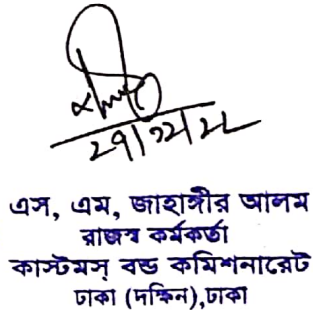 ২৭/১২/২২
এস, এম, জাহাঙ্গীর আলম
রাজস্ব কর্মকর্তা
কাস্টমস্ বন্ড কমিশনারেট
ঢাকা (দক্ষিন),ঢাকা